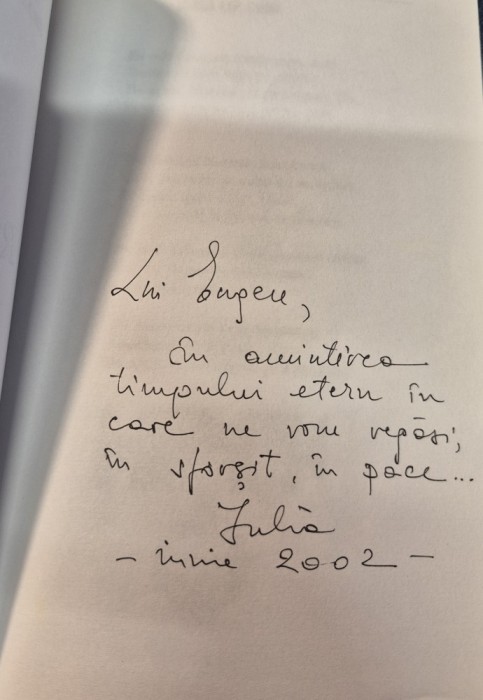 Lui Eugen,
În amintirea
timpului etern în
care ne vom regăsi,
în sfârșit, în pace...
Iulia
- iunie 2002 -